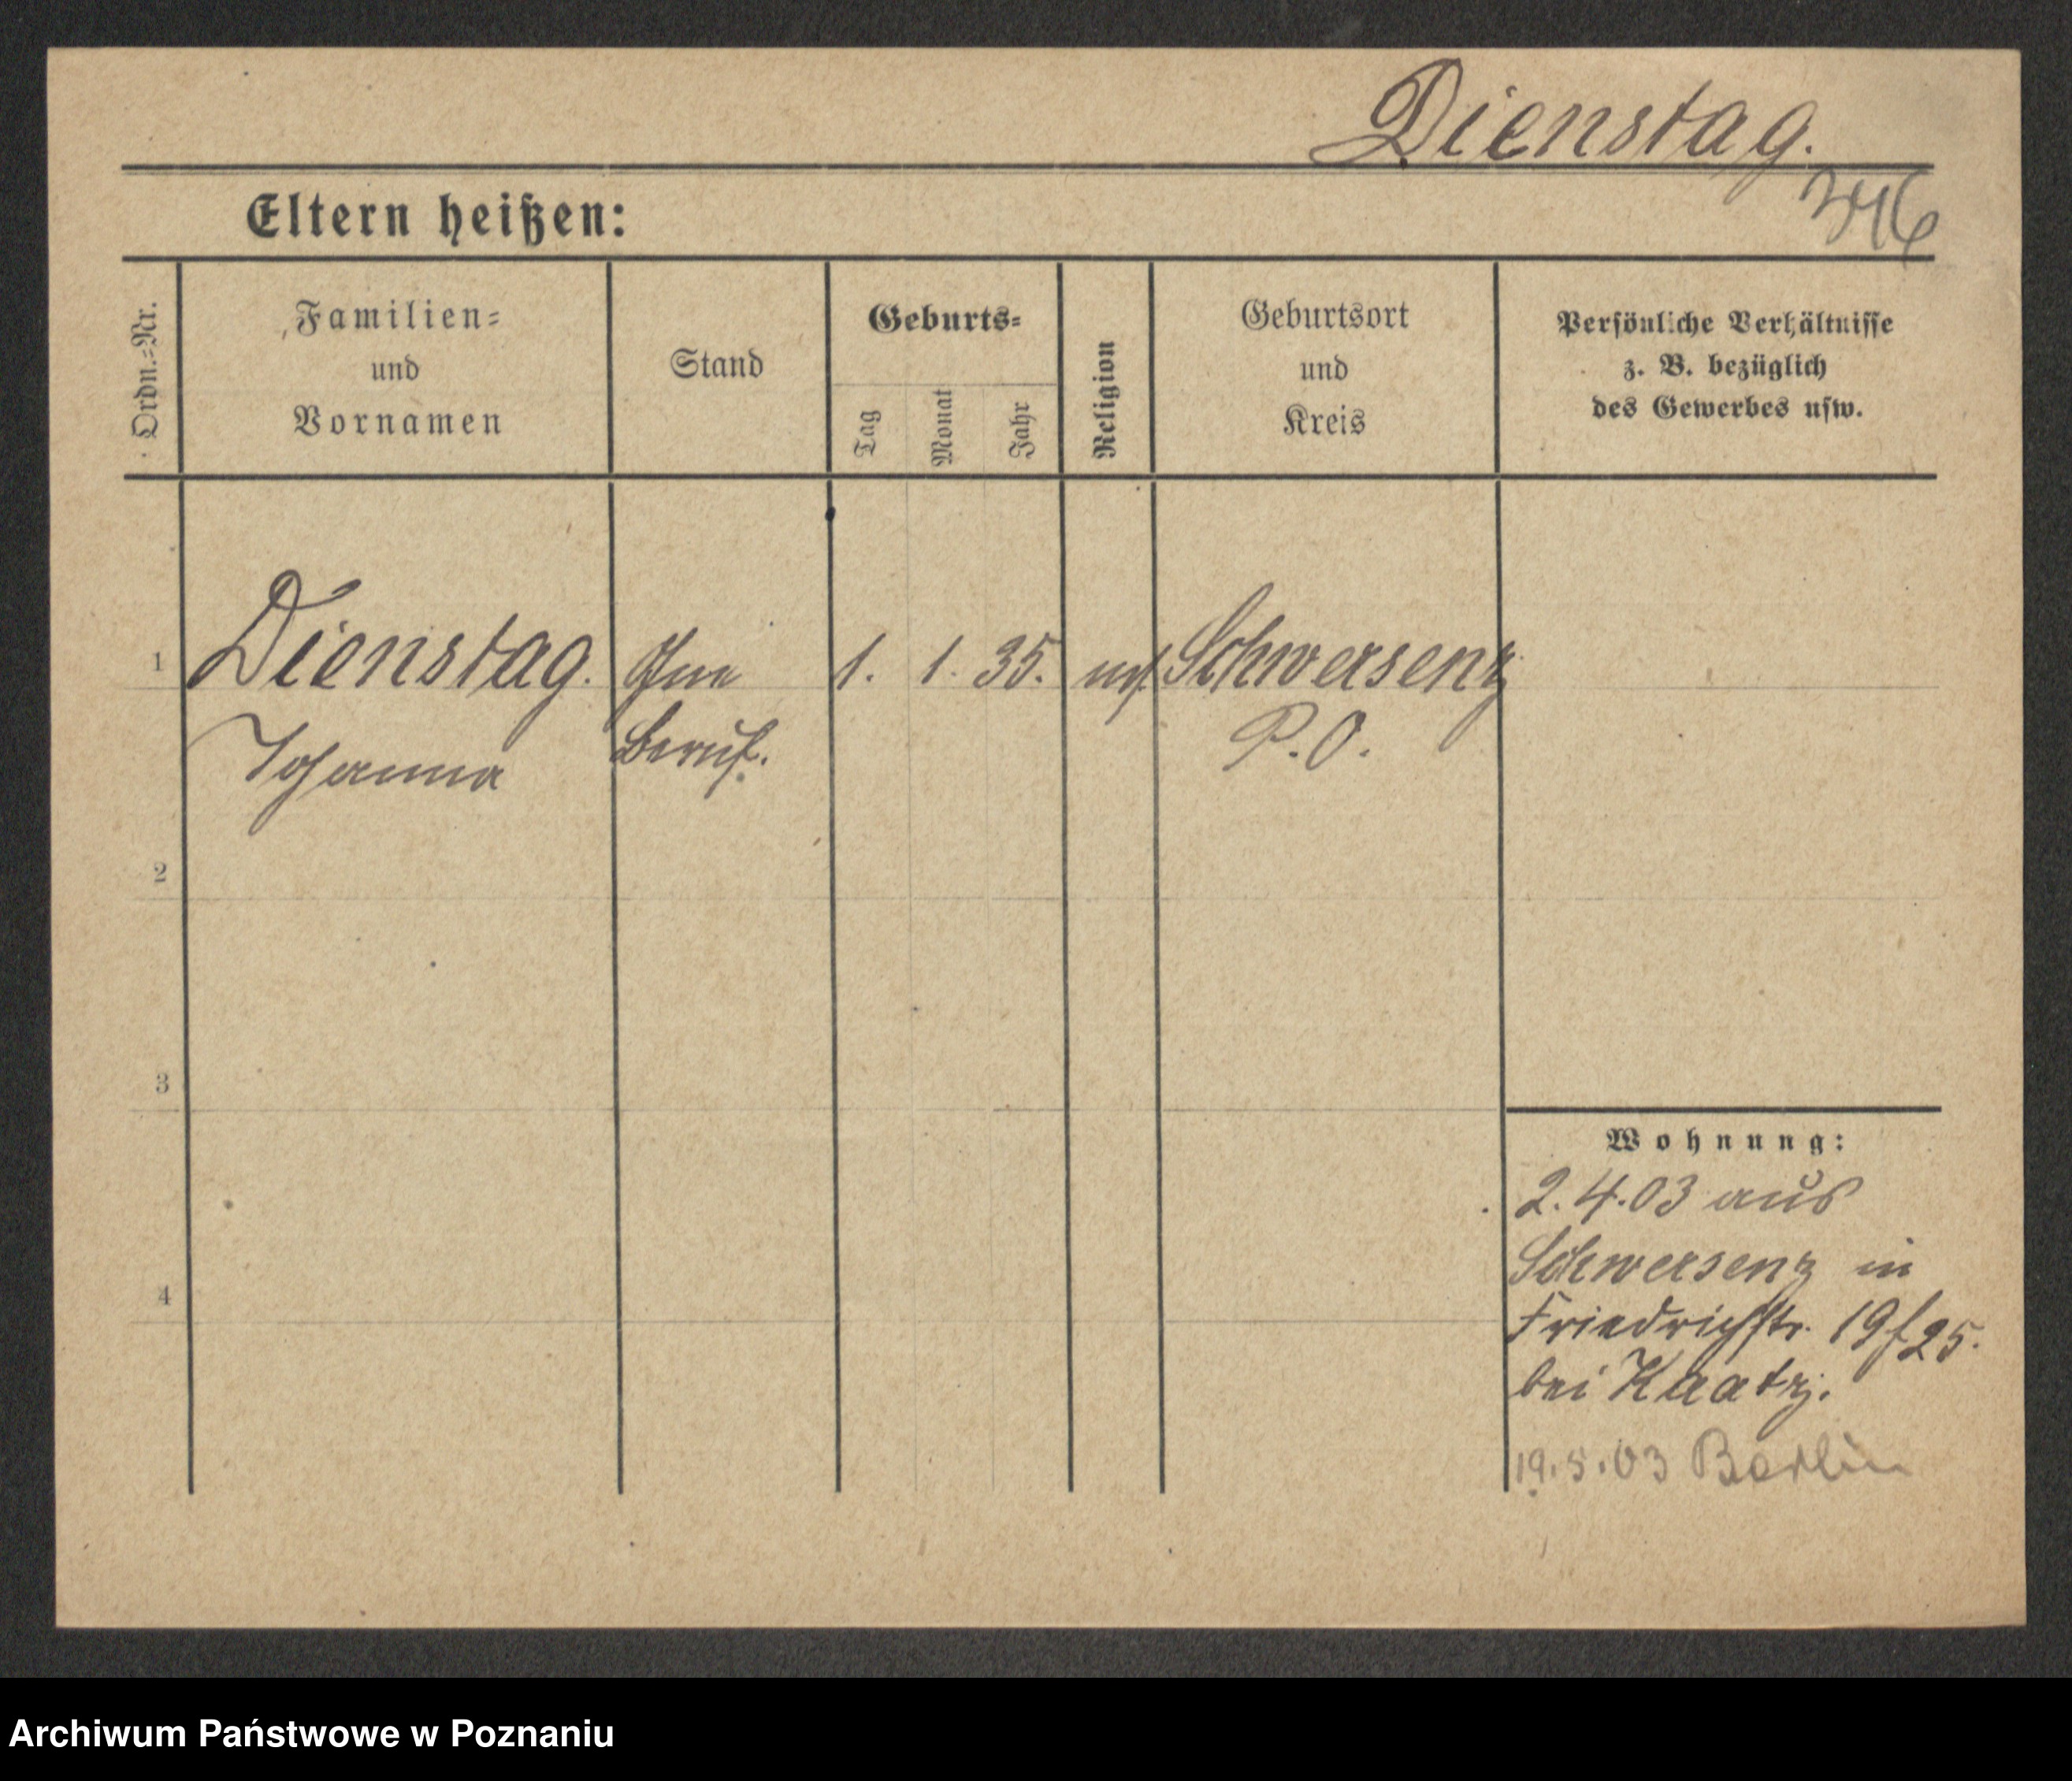 Dienstag.
346
Eltern heißen:
Ordn.=Nr.
Familien=
und
Vornamen
Stand
Geburts=
Tag
Monat
Jahr
Religion
Geburtsort
und
Kreis
Persönliche Verhältnisse
z. B. bezüglich
des Gewerbes usw.
1
Dienstag.
Johanna
Ohne
Beruf.
1. 1. 35.
Schwersenz
P. O.
2
3
4
Wohnung:
2. 4. 03 aus
Schwersenz in
Friedrichstr. 19/25.
bei Kaatz.
19. 5. 03 Berlin
Archiwum Państwowe w Poznaniu